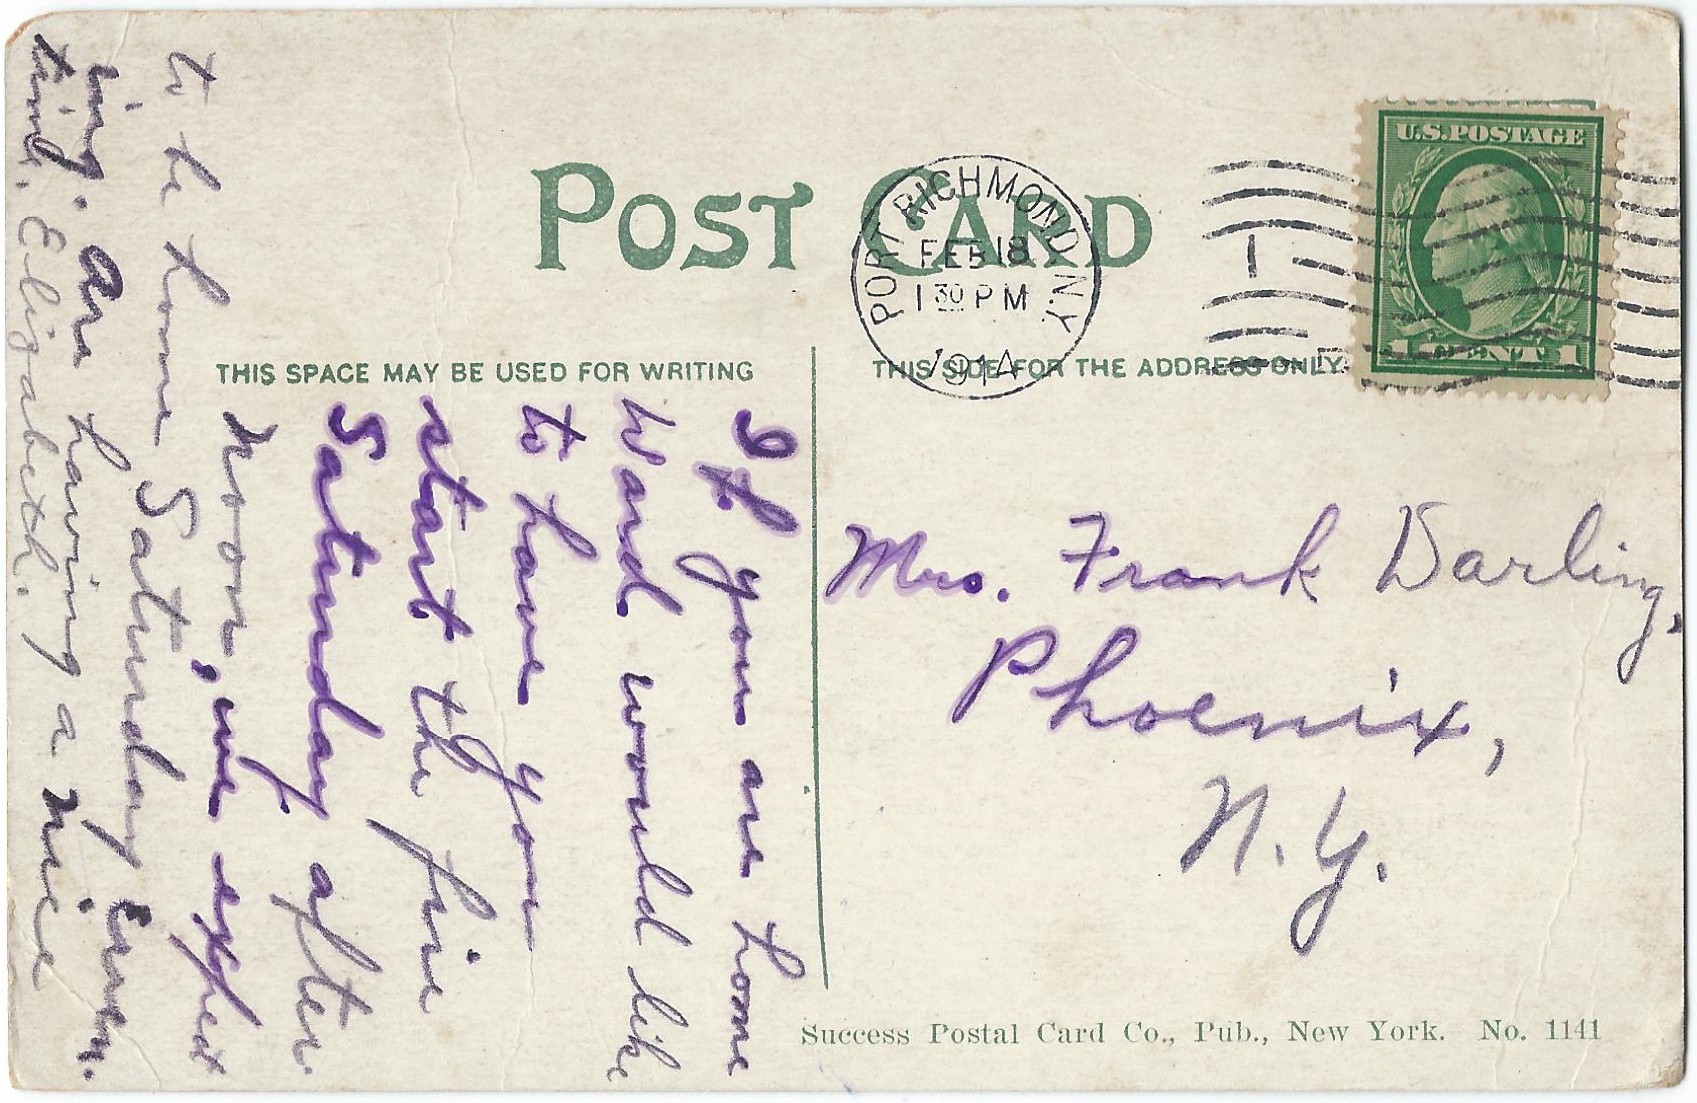 POST CARD
PORT RICHMOND N.Y.
FEB 18
1 30 PM
1914
1
U.S. POSTAGE
1 CENT 1
THIS SPACE MAY BE USED FOR WRITING
THIS SIDE FOR THE ADDRESS ONLY.
If you are home
Ward would like
to have you
start the fire
Saturday after
noon, we expect
to be home Saturday even.
ing. Are having a nice
time. Elizabeth.
Mrs. Frank Darling,
Phoenix,
N.Y.
Success Postal Card Co., Pub., New York. No. 1141